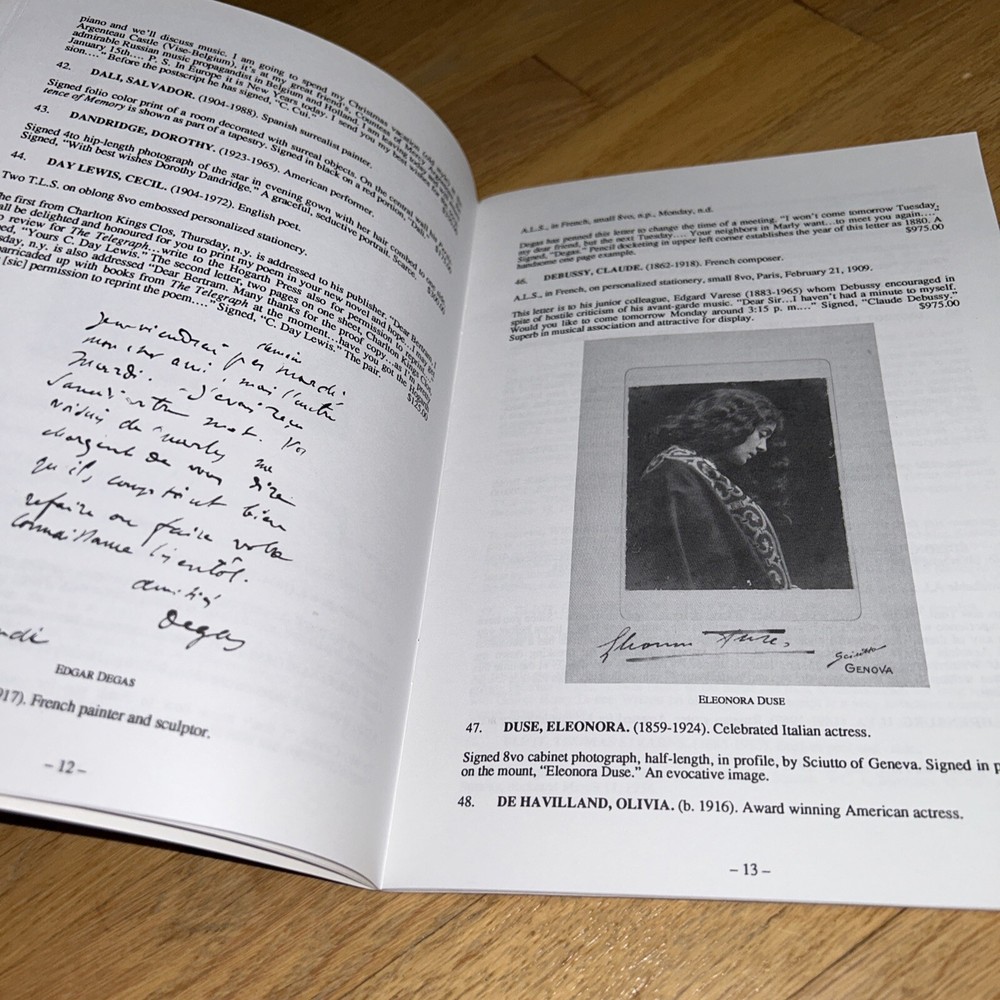 piano and we'll discuss music. I am going to spend my Christmas vacation
Argenteau Castle (Vise-Belgium), it's at my great friend's, Countess of
admirable Russian music propagandist in Belgium and Holland. I am leaving
January 15th.... P. S. In Europe it is New Years today. I send you my best wishes
sion...." Before the postscript he has signed, "C. Cui."
42. DALI, SALVADOR. (1904-1988). Spanish surrealist painter.
Signed folio color print of a room decorated with surreal objects. On the central wall
tence of Memory is shown as part of a tapestry. Signed in black on a red portion,
43. DANDRIDGE, DOROTHY. (1923-1965). American performer.
Signed 4to hip-length photograph of the star in evening gown with her hair combed to one side.
Signed, "With best wishes Dorothy Dandridge." A graceful, seductive portrait. Scarce.
44. DAY LEWIS, CECIL. (1904-1972). English poet.
Two T.L.S. on oblong 8vo embossed personalized stationery.
he first from Charlton Kings Clos, Thursday, n.y. is addressed to his publisher, "Dear Bertram, I
all be delighted and honoured for you to print my poem in your new novel and hope...I may get
o review for The Telegraph...write to the Hogarth Press also for permission to reprint..."
ed, "Yours C. Day Lewis." The second letter, two pages on one sheet, Charlton Kings Clos,
sday, n.y. is also addressed "Dear Bertram. Many thanks for the proof copy...as I'm pretty
arricaded up with books from The Telegraph at the moment...have you got the Hogarth
[sic] permission to reprint the poem...." Signed, "C. Day Lewis." The pair.
$125.00
demain
mardi.
Degas
EDGAR DEGAS
917). French painter and sculptor.
– 12 –
A.L.S., in French, small 8vo, n.p., Monday, n.d.
Degas has penned this letter to change the time of a meeting. "I won't come tomorrow Tuesday,
my dear friend, but the next Tuesday.... Your neighbors in Marly want...to meet you again...."
Signed, "Degas." Pencil docketing in upper left corner establishes the year of this letter as 1880. A
handsome one page example. $975.00
46. DEBUSSY, CLAUDE. (1862-1918). French composer.
A.L.S., in French, on personalized stationery, small 8vo, Paris, February 21, 1909.
This letter is to his junior colleague, Edgard Varese (1883-1965) whom Debussy encouraged in
spite of hostile criticism of his avant-garde music. "Dear Sir...I haven't had a minute to myself.
Would you like to come tomorrow Monday around 3:15 p. m...." Signed, "Claude Debussy."
Superb in musical association and attractive for display. $975.00
Eleonora Duse,
Sciutto
GENOVA
ELEONORA DUSE
47. DUSE, ELEONORA. (1859-1924). Celebrated Italian actress.
Signed 8vo cabinet photograph, half-length, in profile, by Sciutto of Geneva. Signed in p
on the mount, "Eleonora Duse." An evocative image.
48. DE HAVILLAND, OLIVIA. (b. 1916). Award winning American actress.
– 13 –